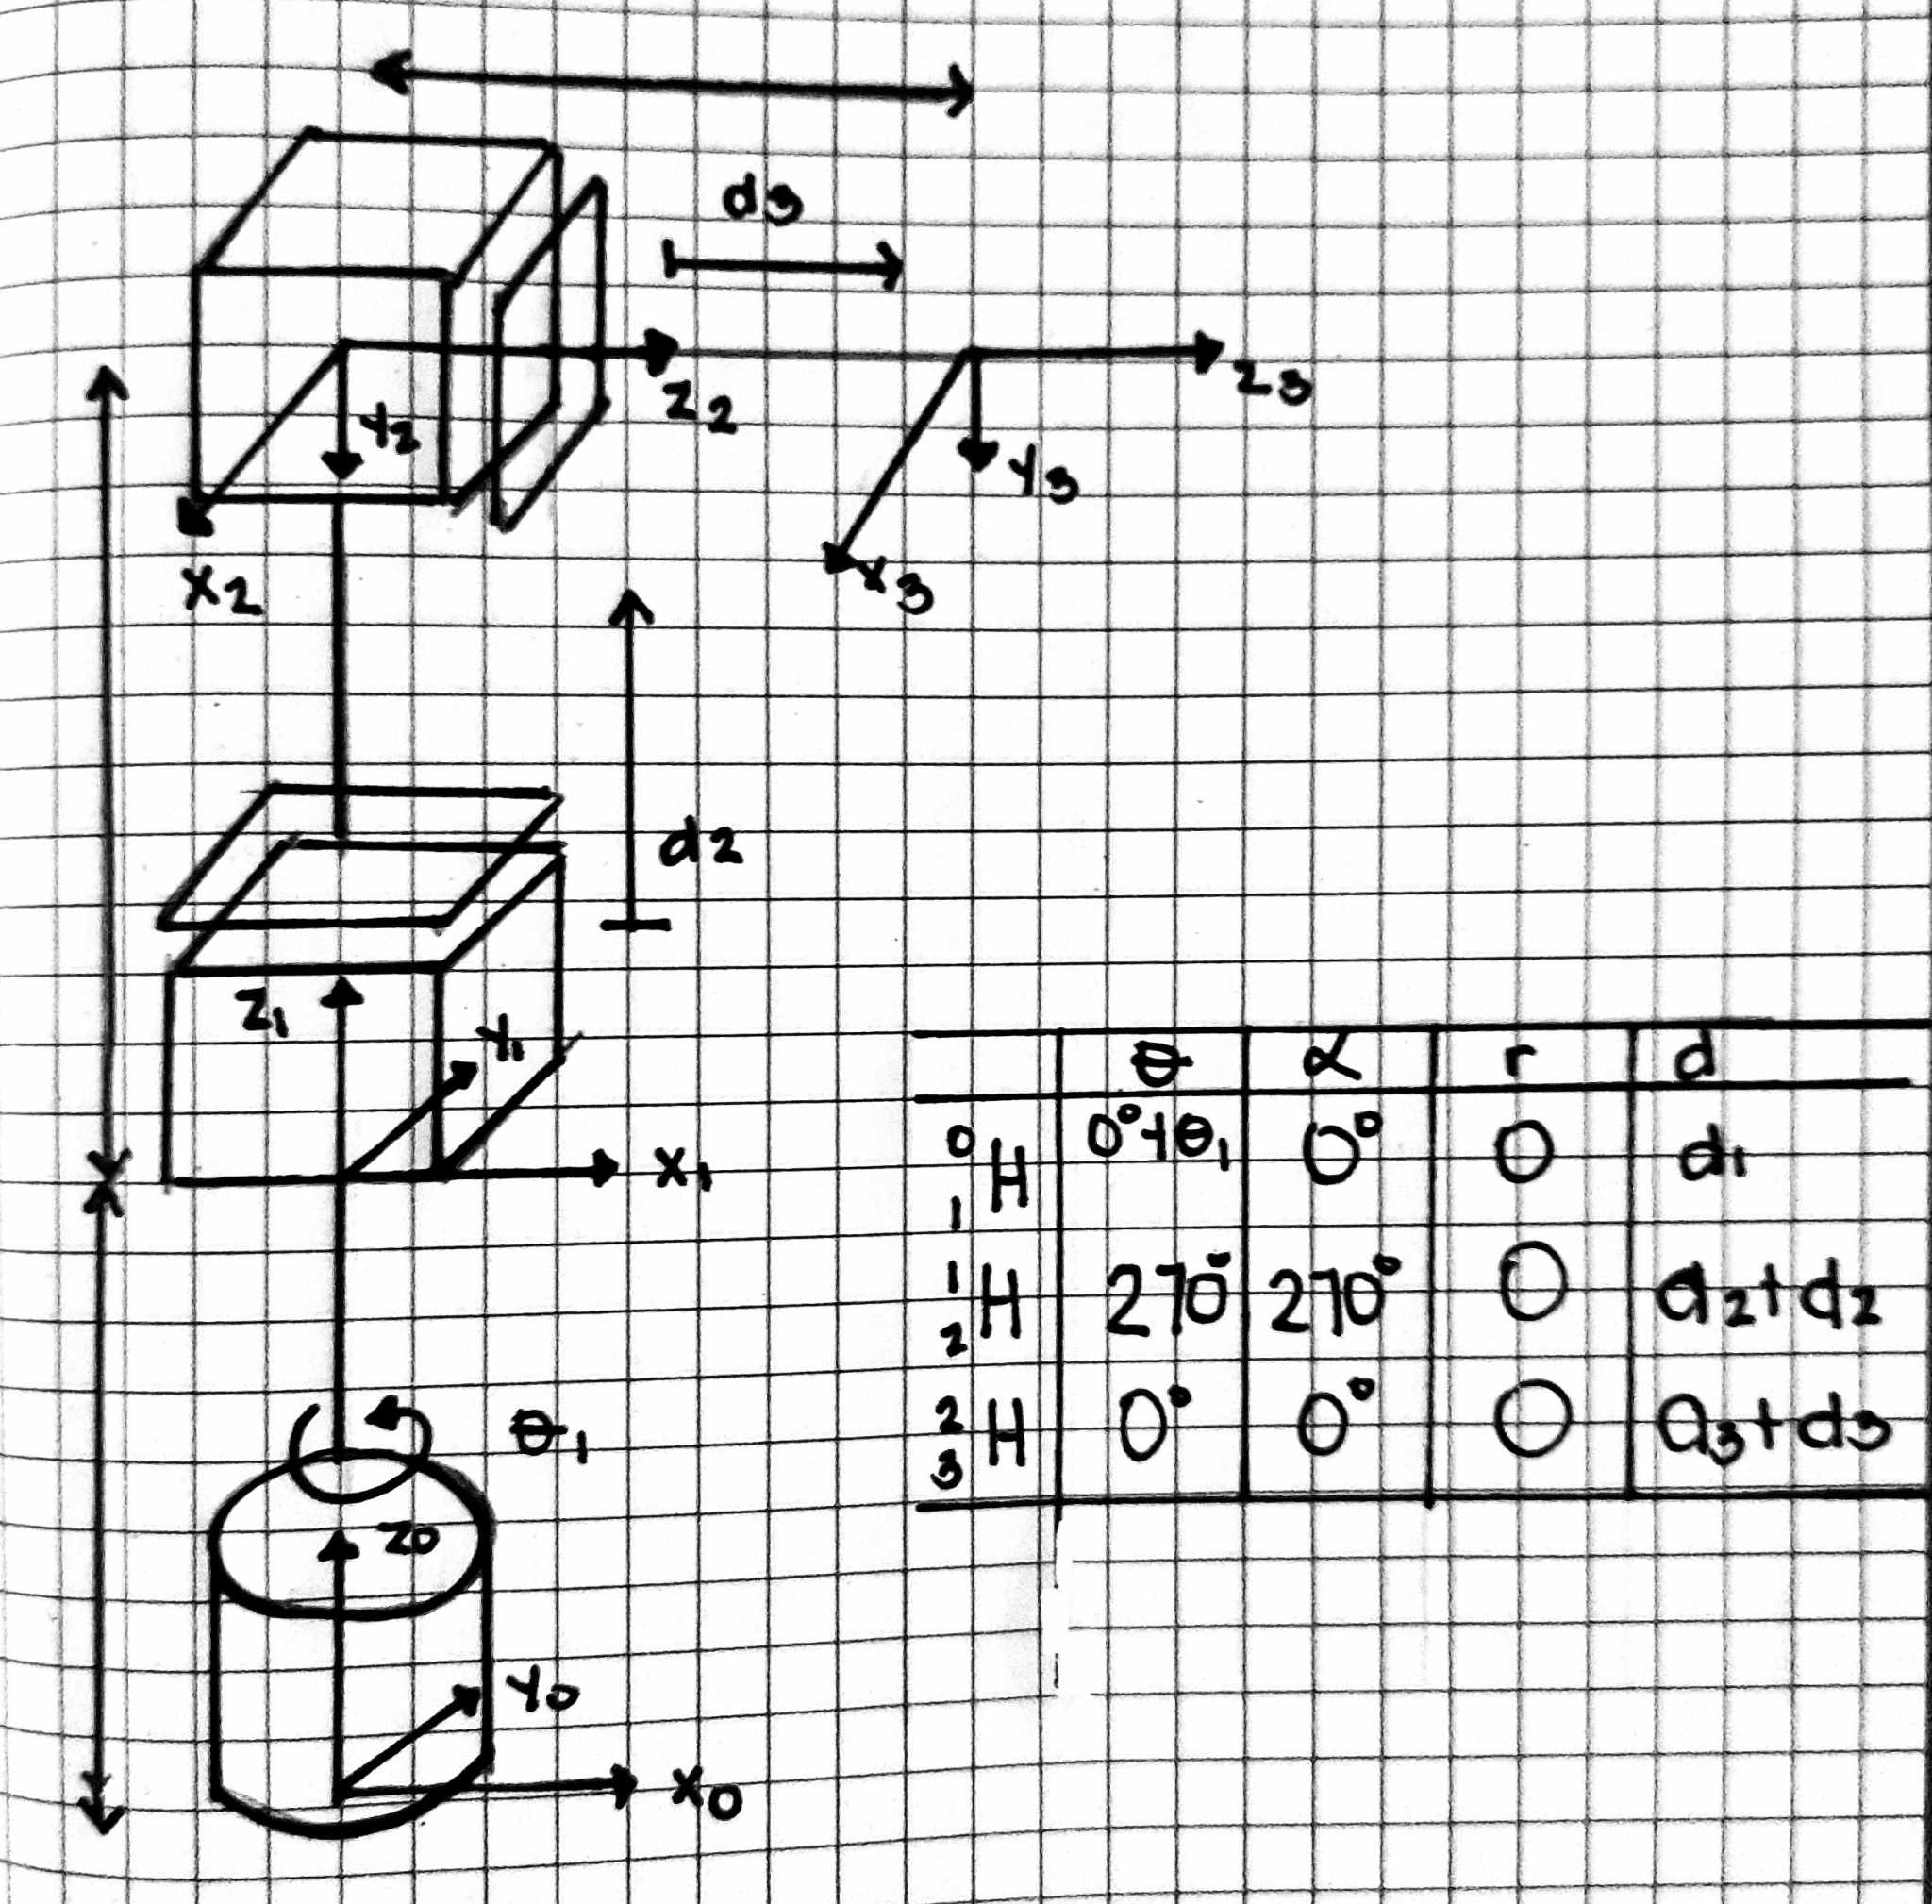 d3
z2
z3
Y2
Y3
x2
x3
d2
z1
Y1
x1
θ1
z0
Y0
x0
θ α r d
0 1 H 0°+θ1 0° 0 d1
1 2 H 270° 270° 0 a2+d2
2 3 H 0° 0° 0 a3+d3